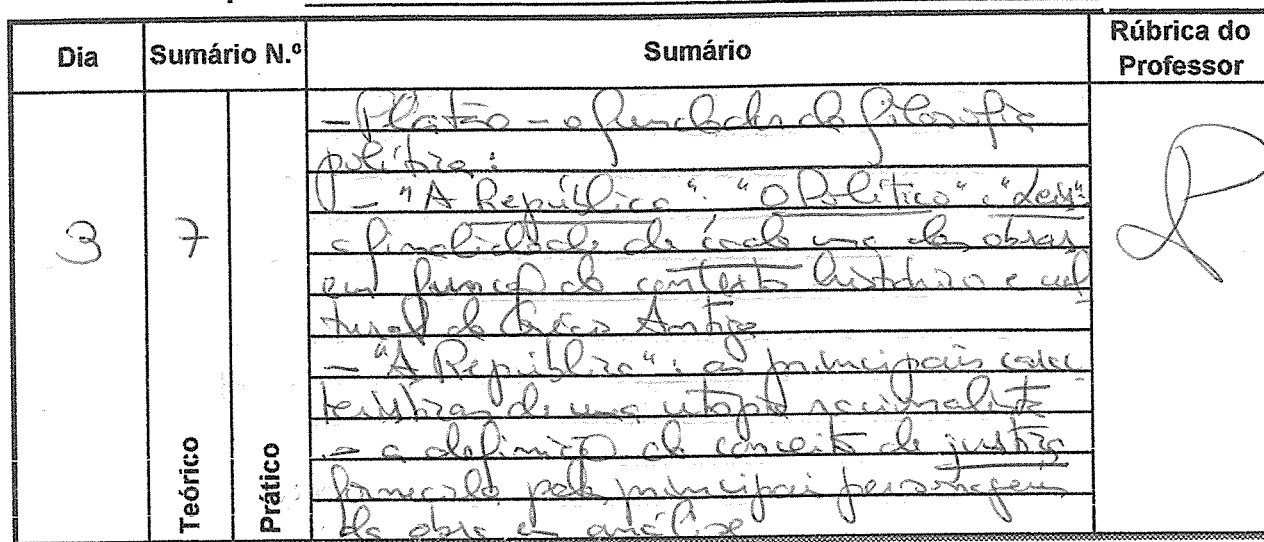 Dia Sumário N.º Sumário Rúbrica do Professor
3 7
Teórico Prático
- Platão - o fundador da filosofia
política:
- "A República", "O Político" e "Leis":
a finalidade de cada uma das obras
em função do contexto histórico e cul
tural da Grécia Antiga
- "A República": as principais carac
terísticas de uma utopia racionalista
- a definição do conceito de justiça
fornecida pelas principais personagens
da obra em análise